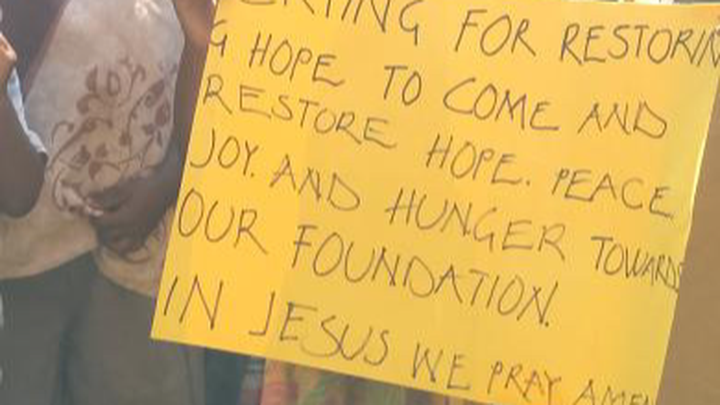 FOR RESTORIN
G HOPE TO COME AND
RESTORE HOPE. PEACE
JOY. AND HUNGER TOWARDS
OUR FOUNDATION.
IN JESUS WE PRAY AMEN